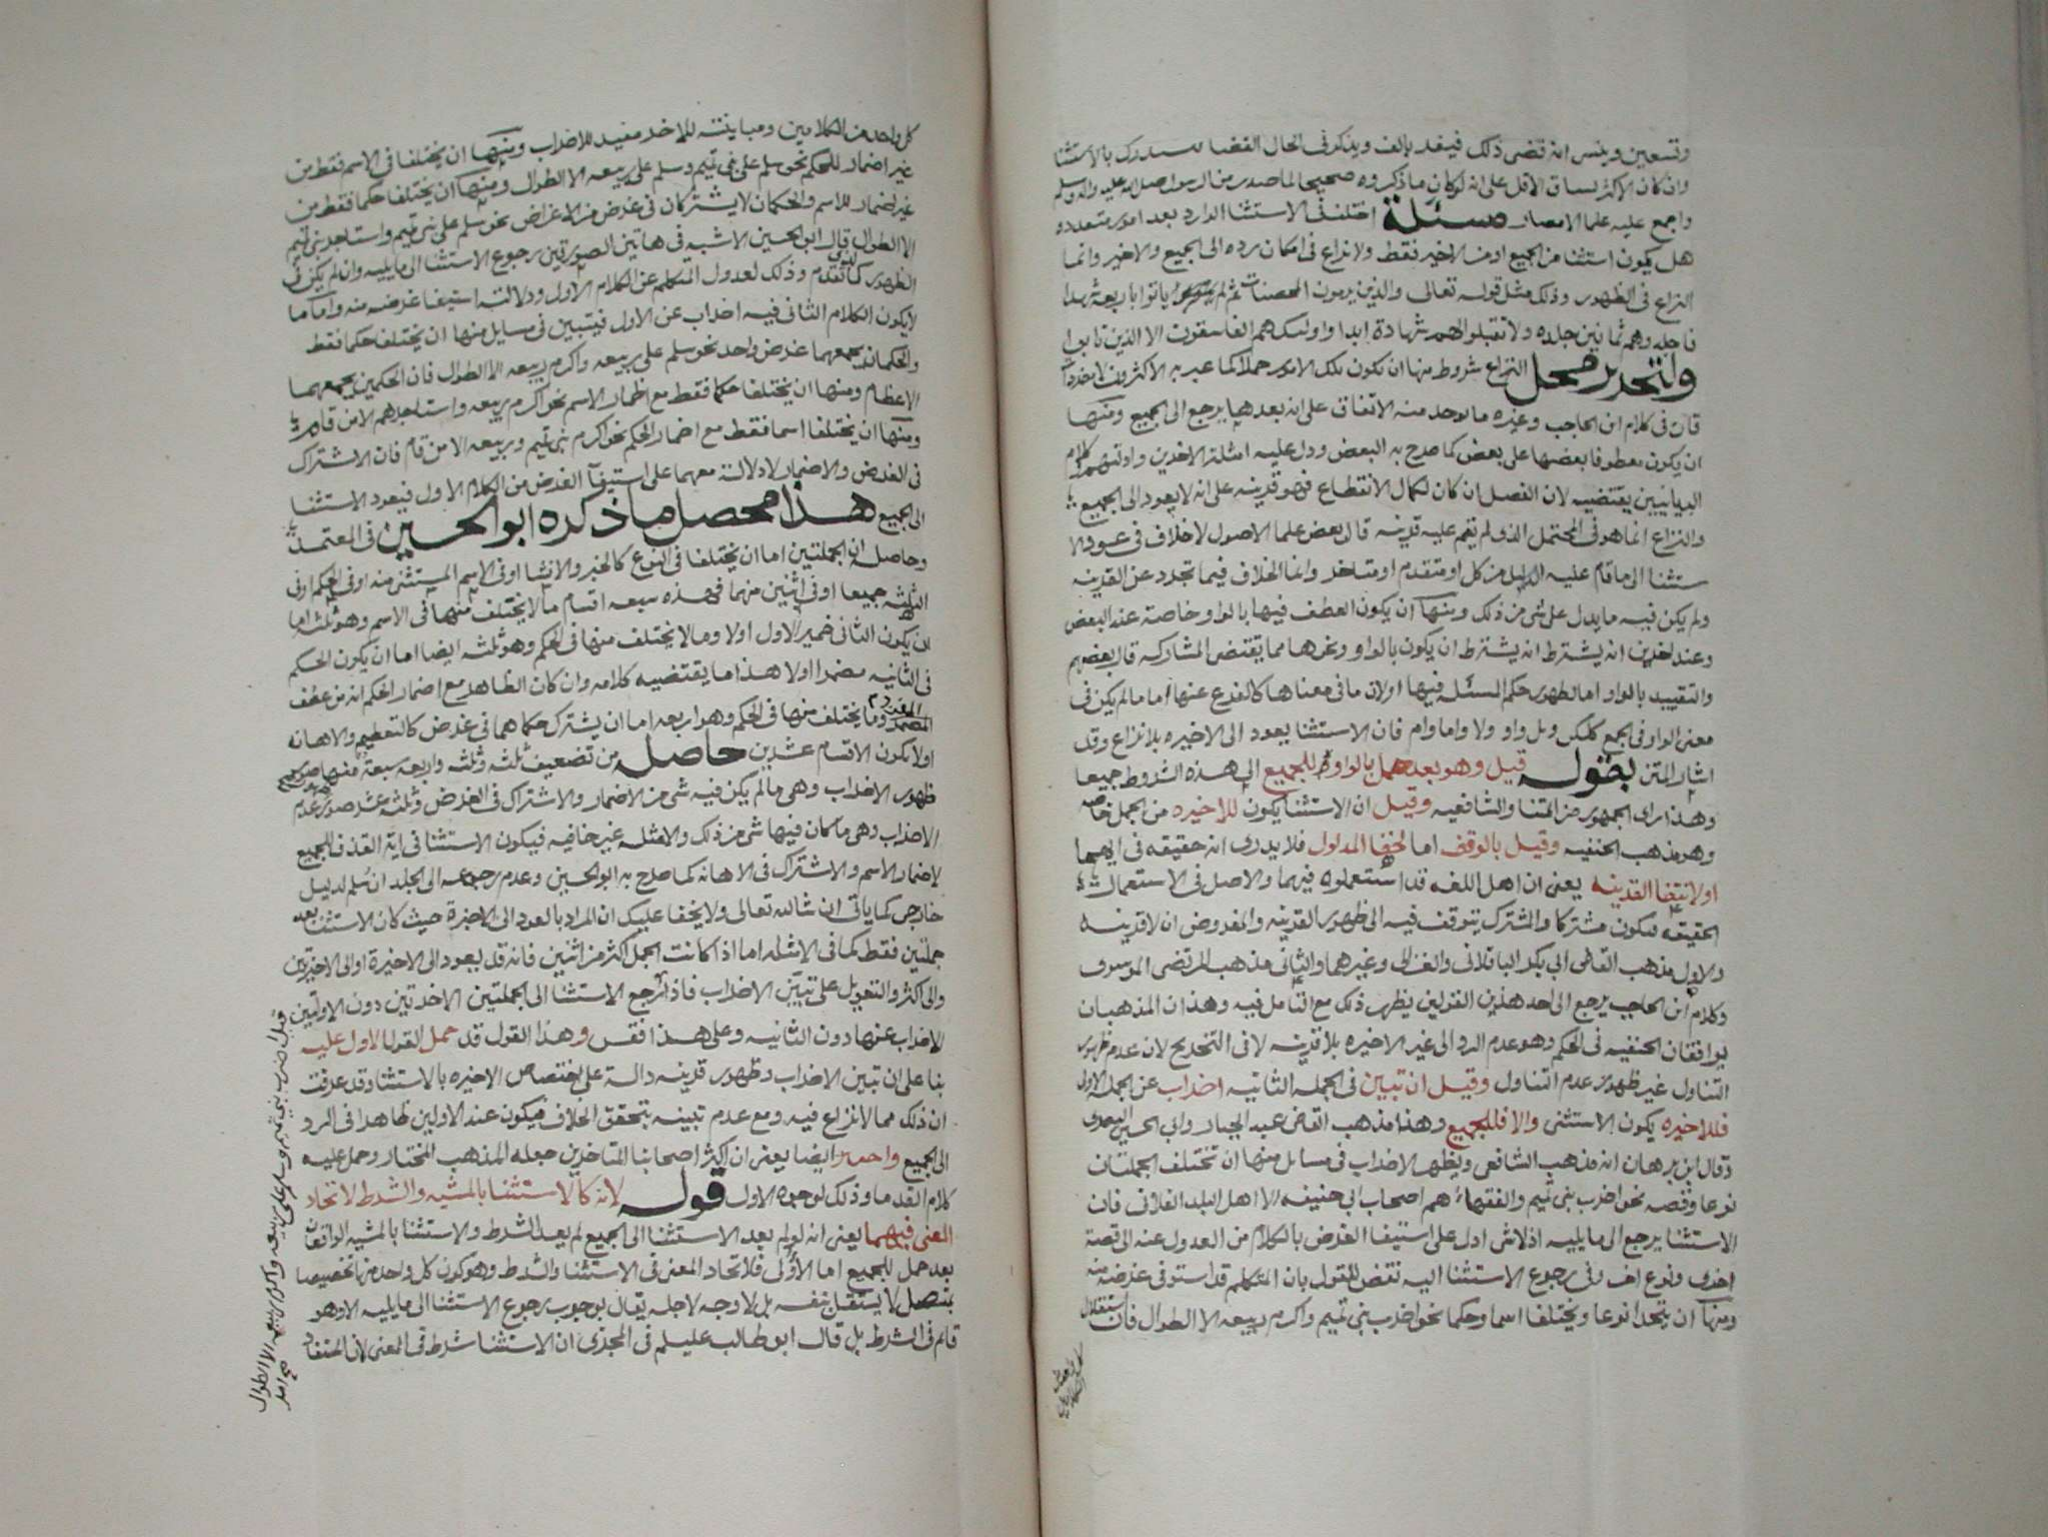 وتسعين وينسى انه قضى ذلك فيقر بالف ويذكر فى الحال القضا فيستدرك بالاستثنا
وان كان الاكثر يساق الاقل على انه لو كان ما ذكروه صحيحا لما صدر من الرسول صلى الله عليه واله وسلم
واجمع عليه علما الامصار مسئلة اختلف فى الاستثنا الوارد بعد امور متعدده
هل يكون استثنا من الجميع او من الاخير فقط ولا نزاع فى امكان رده الى الجميع والاخير وانما
النزاع فى الظهور وذلك مثل قوله تعالى والذين يرمون المحصنات ثم لم ياتوا باربعة شهدا
فاجلدوهم ثمانين جلده ولا تقبلوا لهم شهادة ابدا واولئك هم الفاسقون الا الذين تابوا
ولتحرير محل النزاع شروط منها ان يكون تلك الامور جملا كما عبر به الاكثرون لا مفردات
فان فى كلام ابن الحاجب وغيره ما يوخذ منه الاتفاق على انه بعدها يرجع الى الجميع ومنها
ان يكون معطوفا بعضها على بعض كما صرح به البعض ودل عليه امثلة الاخرين وادلتهم وكلام
البيانيين يقتضيه لان الفصل ان كان لكمال الانقطاع فهو قرينه على انه لا يعود الى الجميع
والنزاع انما هو فى المحتمل الذى لم تقم عليه قرينه قال بعض علما الاصول لا خلاف فى عود الا
ستثنا الى ما قام عليه الدليل من كل او متقدم او متاخر وانما الخلاف فيما تجرد عن القرينه
ولم يكن فيه ما يدل على شى من ذلك ومنها ان يكون العطف فيها بالواو خاصة عند البعض
وعند اخرين انه يشترط ان يكون بالواو ونحوها مما يقتضى المشاركه قال بعضهم
والتقييد بالواو اما لظهور حكم المسئله فيها او لان ما فى معناها كالفرع عنها اما ما لم يكن فى
معنى الواو فى الجمع كلكن وبل واو ولا واما وام فان الاستثنا يعود الى الاخيره بلا نزاع وقد
اشار المتن بقوله قيل وهو بعد جمل بالواو للجميع الى هذه الشروط جميعا
وهذا راى الجمهور من ائمتنا والشافعيه وقيل ان الاستثنا يكون للاخيره من الجمل خاصه
وهو مذهب الحنفيه وقيل بالوقف اما لخفا المدلول فلا يدرى انه حقيقه فى ايهما
او لانتفا القرينه يعنى ان اهل اللغه قد استعملوه فيهما والاصل فى الاستعمال
الحقيقه فيكون مشتركا والمشترك يتوقف فيه الى ظهور القرينه والمفروض ان لا قرينه
والاول مذهب القاضى ابي بكر الباقلانى والغزالى وغيرهما والثانى مذهب المرتضى الموسوى
وكلام ابن الحاجب يرجع الى احد هذين القولين يظهر ذلك مع التامل فيه وهذان المذهبان
يوافقان الحنفيه فى الحكم وهو عدم الرد الى غير الاخيره بلا قرينه لا فى التخريج لان عدم ظهور
التناول غير ظهور عدم التناول وقيل ان تبين فى الجمله الثانيه اضراب عن الجمله الاولى
فللاخيره يكون الاستثنى والا فللجميع وهذا مذهب القاضى عبد الجبار وابى الحسين البصرى
وقال ابن برهان انه مذهب الشافعى ويظهر الاضراب فى مسائل منها ان تختلف الجملتان
نوعا وقصه نحو اضرب بنى تميم والفقهاء هم اصحاب ابى حنيفه الا اهل البلد الفلانى فان
الاستثنا يرجع الى ما يليه اذ لا شى ادل على استيفا الغرض بالكلام من العدول عنه الى قصة
اخرى ونوع اخر وفى رجوع الاستثنا اليه نقض للقول بان المتكلم قد استوفى غرضه منه
ومنها ان يتحدا نوعا ويختلفا اسما وحكما نحو اضرب بنى تميم واكرم ربيعه الا الطوال فان استقلال
كل واحد من الكلامين ومباينته للاخر مفيد للاضراب ومنها ان يختلفا فى الاسم فقط من
غير اضمار للحكم نحو سلم على بنى تميم وسلم على ربيعه الا الطوال ومنها ان يختلفا حكما فقط من
غير اضمار للاسم والحكمان لا يشتركان فى غرض من الاغراض نحو سلم على بنى تميم واستاجر بنى تميم
الا الطوال قال ابو الحسين الاشبه فى هاتين الصورتين رجوع الاستثنا الى ما يليه وان لم يكن فى
الظهور كما تقدم وذلك لعدول المتكلم عن الكلام الاول ودلالته استيفا غرضه منه واما ما
لا يكون الكلام الثانى فيه اضراب عن الاول فيتبين فى مسايل منها ان يختلفا حكما فقط
والحكمان يجمعهما غرض واحد نحو سلم على ربيعه واكرم ربيعه الا الطوال فان الحكمين يجمعهما
الاعظام ومنها ان يختلفا حكما فقط مع اضمار الاسم نحو اكرم ربيعه واستاجرهم الا من قام
ومنها ان يختلفا اسما فقط مع اضمار الحكم نحو اكرم بنى تميم وربيعه الا من قام فان الاشتراك
فى الغرض والاضمار لا دلالة معهما على استيفآ الغرض من الكلام الاول فيعود الاستثنا
الى الجميع هذا محصل ما ذكره ابو الحسين فى المعتمد
وحاصله ان الجملتين اما ان يختلفا فى النوع كالخبر والانشا او فى الاسم المستثنى منه او فى الحكم او فى
الثلثه جميعا او فى اثنين منهما فهذه سبعه اقسام ما لا يختلف منها فى الاسم وهو ثلثه اما
ان يكون الثانى ضمير الاول او لا وما لا يختلف منها فى الحكم وهو ثلثه ايضا اما ان يكون الحكم
فى الثانيه مضمرا او لا هذا ما يقتضيه كلامه وان كان الظاهر مع اضمار الحكم انه من عطف
المفرد وما يختلف منها فى الحكم وهو اربعه اما ان يشترك حكماهما فى غرض كالتعظيم والاهانه
او لا يكون الاقسام عشرين حاصله من تضعيف ثلثه وثلثه واربعه سبعة منها صور
ظهور الاضراب وهى ما لم يكن فيه شى من الاضمار والاشتراك فى الغرض وثلثه عشر صور عدم
الاضراب وهى ما كان فيها شى من ذلك والامثله غير خافيه فيكون الاستثنا فى اية القذف للجميع
لاضمار الاسم والاشتراك فى الاهانه كما صرح به ابو الحسين وعدم رجوعه الى الجلد ان سلم لدليل
خارجى كما ياتى ان شا الله تعالى ولا يخفا عليك ان المراد بالعود الى الاخيرة حيث كان الاستثنا بعد
جملتين فقط كما فى الامثله اما اذا كانت الجمل اكثر من اثنين فانه قد يعود الى الاخيرة او الى الاخيرتين
والى اكثر والتعويل على تبين الاضراب فاذا رجع الاستثنا الى الجملتين الاخرتين دون الاوليين
الاضراب عنها دون الثانيه وعلى هذا فقس وهذا القول قد حمل القول الاول عليه
بنا على ان تبين الاضراب وظهور قرينه دالة على اختصاص الاخيره بالاستثنا وقد عرفت
ان ذلك مما لا نزاع فيه ومع عدم تبينه يتحقق الخلاف فيكون عند الاولين ظاهرا فى الرد
الى الجميع ايضا يعنى ان اكثر اصحابنا المتاخرين جعله المذهب المختار وحمل عليه
كلام القدما وذلك لوجوه الاول قوله لانه كالاستثنا بالمشيه والشرط لاتحاد
المعنى فيهما يعنى انه لو لم يعد الاستثنا الى الجميع لم يعد الشرط والاستثنا بالمشيه الواقعان
بعد جمل للجميع اما الأولى فلاتحاد المعنى فى الاستثنا والشرط وهو كون كل واحد منهما تخصيصا
بمتصل لا يستقل بنفسه بل لا وجه لاجله يقال بوجوب رجوع الاستثنا الى ما يليه الا وهو
قائم فى الشرط بل قال ابو طالب عليلم فى المجزى ان الاستثنا شرط فى المعنى
قبل اضرب بنى تميم وسلم على ربيعه واكرم ربيعه الا الطوال